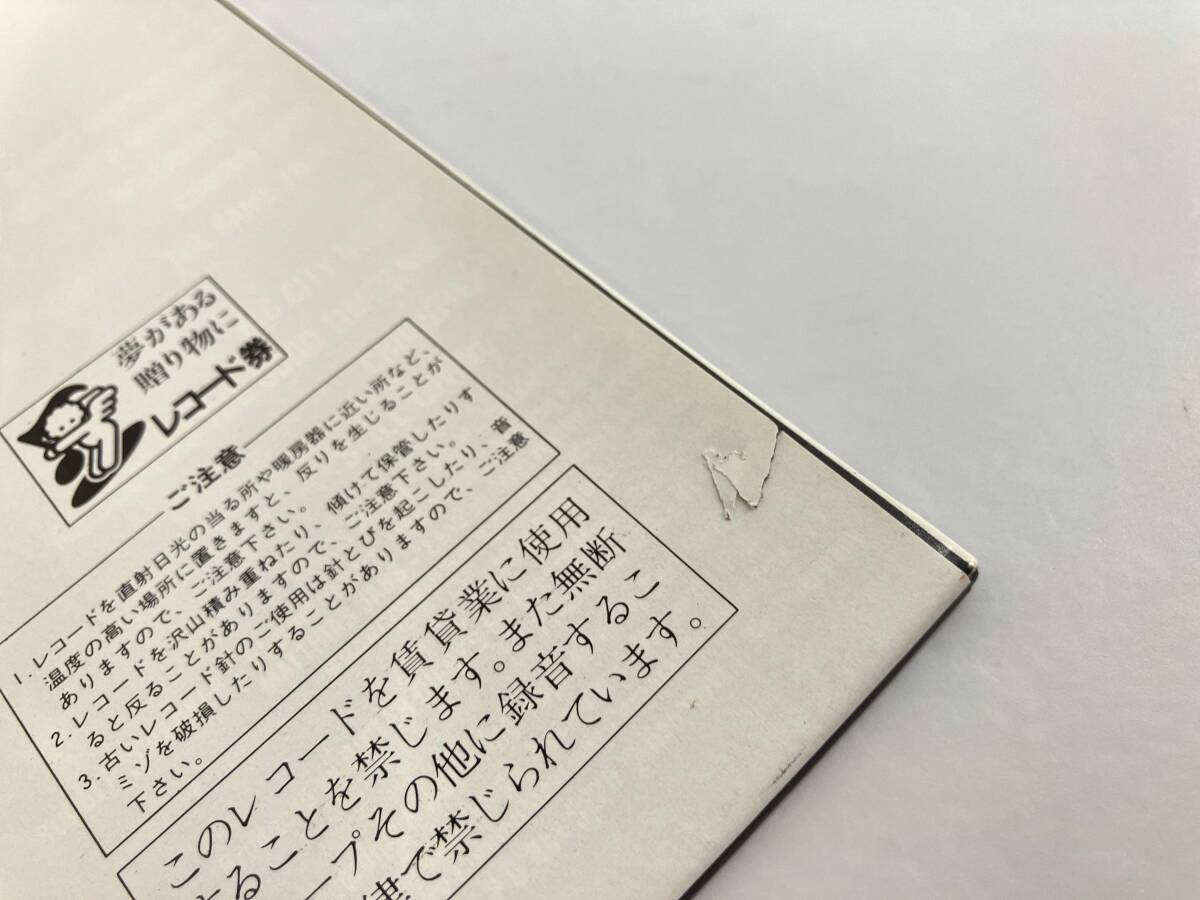 夢がある
贈り物に
レコード券
ご注意
1. レコードを直射日光の当る所や暖房器に近い所など、
温度の高い場所に置きますと、反りを生じることが
ありますので、ご注意下さい。
2. レコードを沢山積み重ねたり、傾けて保管したりす
ると反ることがありますので、ご注意下さい。
3. 古いレコード針のご使用は針とびを起こしたり、音
ミゾを破損したりすることがありますので、ご注意
下さい。
このレコードを賃貸業に使用
することを禁じます。また無断
ープその他に録音するこ
律で禁じられています。